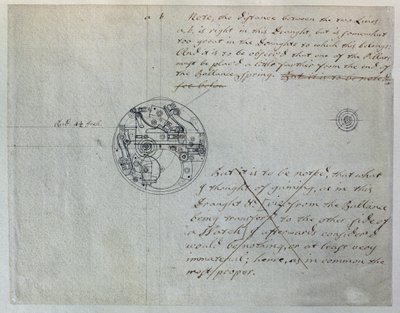 a b
Note, the distance between the two Lines
a, b, is right in this Draught, but is somewhat
too great in the Draught to which this belongs:
And it is to be observ'd that one of the Pillars
must be plac'd a little further from the end of
the Ballance spring. But it is to be noted,
see below
Rad. 44 feet.
But it is to be noted that what
I thought of gaining, as in this
Draught from the Ballance
being transfer'd to the other side of
a Watch, I afterwards consider'd
would be nothing, or at least very
immaterial; hence, as in common the
most proper.